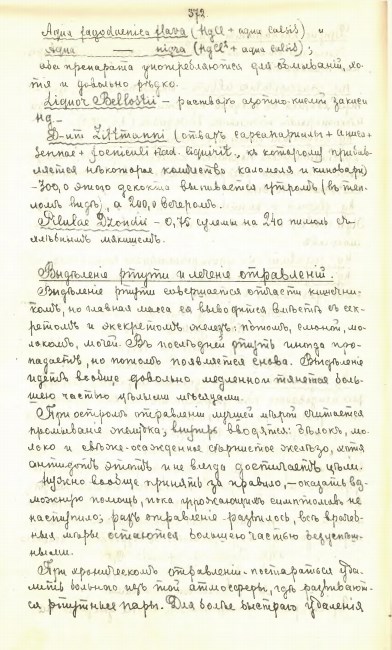 372.
Aqua fagedaenica flava (HgCl + aqua calcis) и
Aqua — nigra (HgCl² + aqua calcis);
оба препарата употребляются для обмываній, хо-
тя и довольно рѣдко.
Liquor Bellostii – растворъ азотно-кислой закиси
Hg –
D-um Zittmanni (отваръ сарсапариллы + anisi +
sennae + foeniculi + rad. liquirit., къ которому прибав-
ляется нѣкоторое количество каломеля и киновари)
– 300,0 этого декокта выпивается утромъ (въ теп-
ломъ видѣ), а 200,0 вечеромъ.
Pilulae Dzondii – 0,75 сулемы на 240 пилюль съ
хлѣбнымъ мякишемъ.
Выдѣленіе ртути и леченіе отравленій.
Выдѣленіе ртути совершается отчасти кишечни-
комъ, но главная масса ея выводится вмѣстѣ съ сек-
ретомъ и экскретомъ железъ: потомъ, слюной, мо-
локомъ, мочей. Въ послѣдней ртуть иногда про-
падаетъ, но потомъ появляется снова. Выдѣленіе
идетъ вообще довольно медленно и тянется боль-
шею частью цѣлыми мѣсяцами.
При остромъ отравленіи лучшей мѣрой считается
промываніе желудка; внутрь вводятся: бѣлокъ, мо-
локо и свѣже-осажденное сѣрнистое желѣзо, хотя
антидотъ этотъ и не всегда достигаетъ цѣли.
Нужно вообще принять за правило, – оказать воз-
можную помощь, пока угрожающихъ симптомовъ не
наступило; разъ отравленіе развилось, всѣ врачеб-
ныя мѣры остаются большею частью безуспѣш-
ными.
При хроническомъ отравленіи – постараться уда-
лить больного изъ той атмосферы, гдѣ развивают-
ся ртутные пары. Для болѣе быстраго удаленія